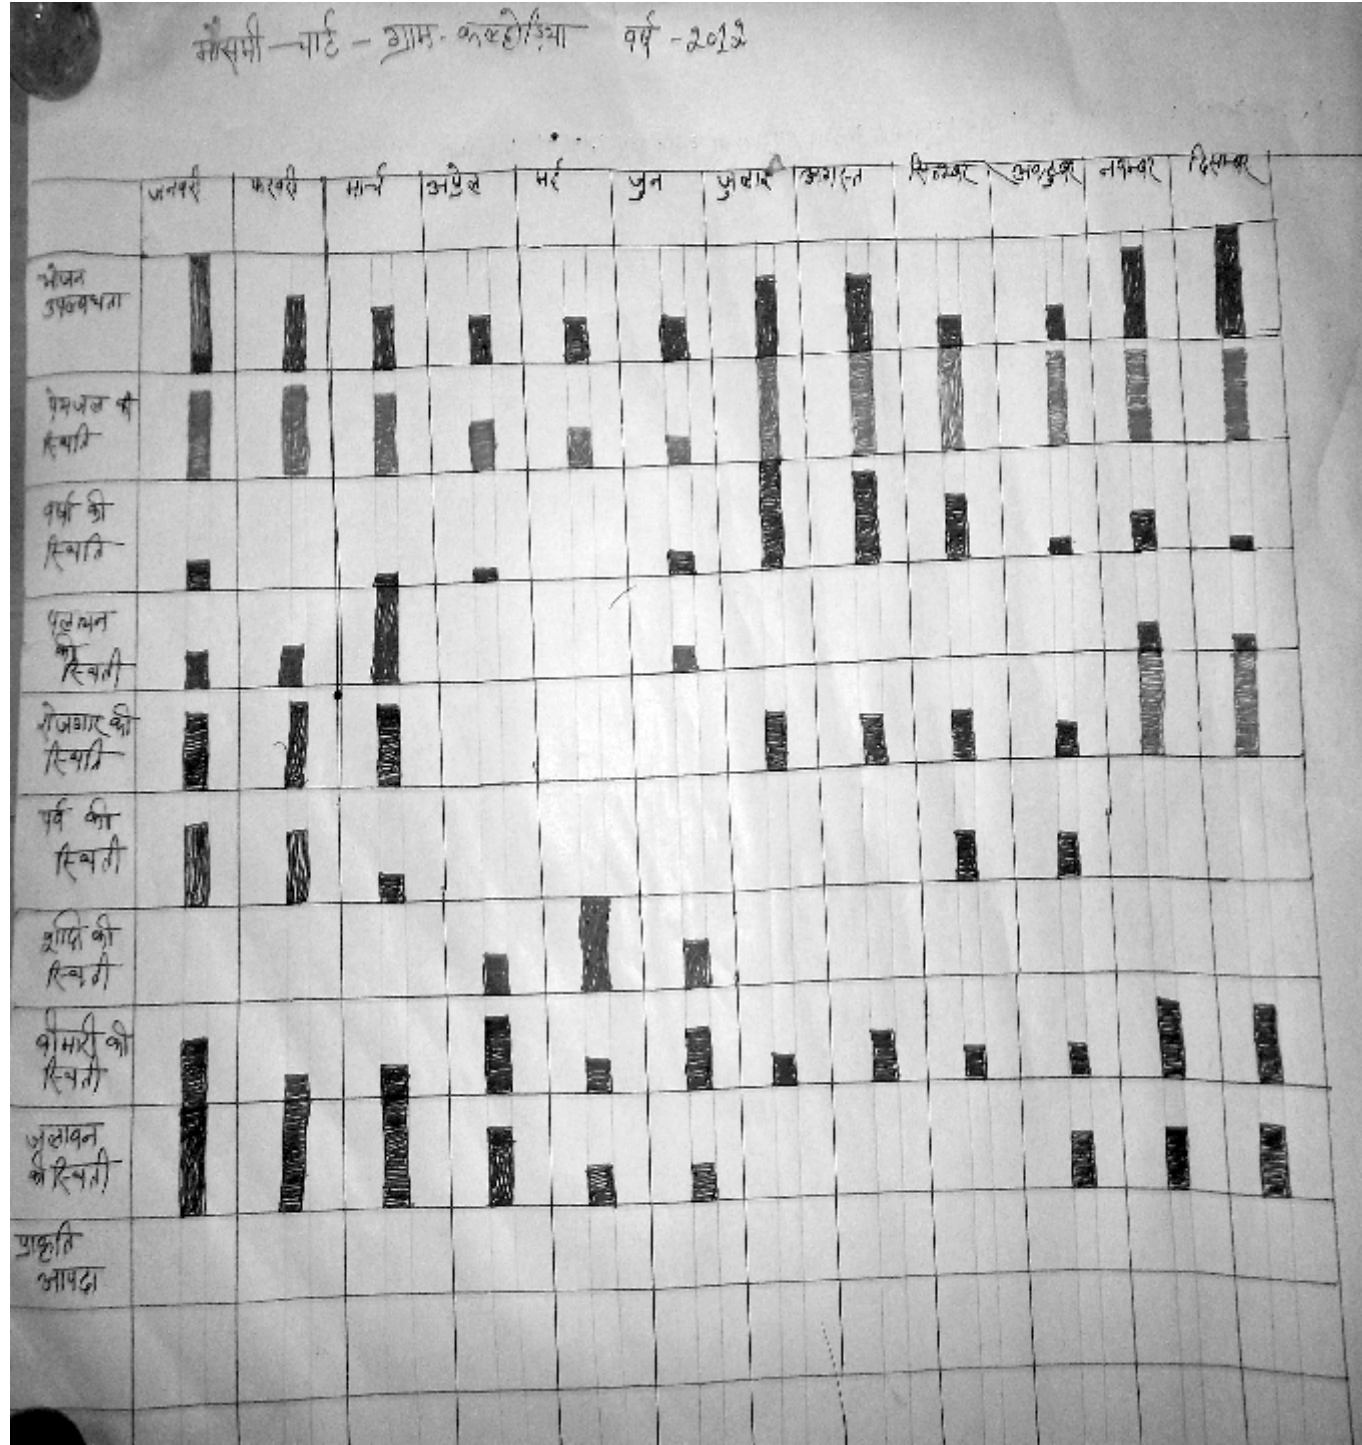 मौसमी चार्ट - ग्राम - कल्होड़िया वर्ष - 2012
जनवरी फरवरी मार्च अप्रेल मई जुन जुलाई अगस्त सितम्बर अक्टुबर नवम्बर दिसम्बर
भोजन
उपलबधता
पेयजल की
स्थिति
वर्षा की
स्थिति
पलायन
की
स्थिती
रोजगार की
स्थिति
पर्व की
स्थिती
शादि की
स्थिती
बीमारी की
स्थिती
जलावन
की स्थिती
प्राकृति
आपदा